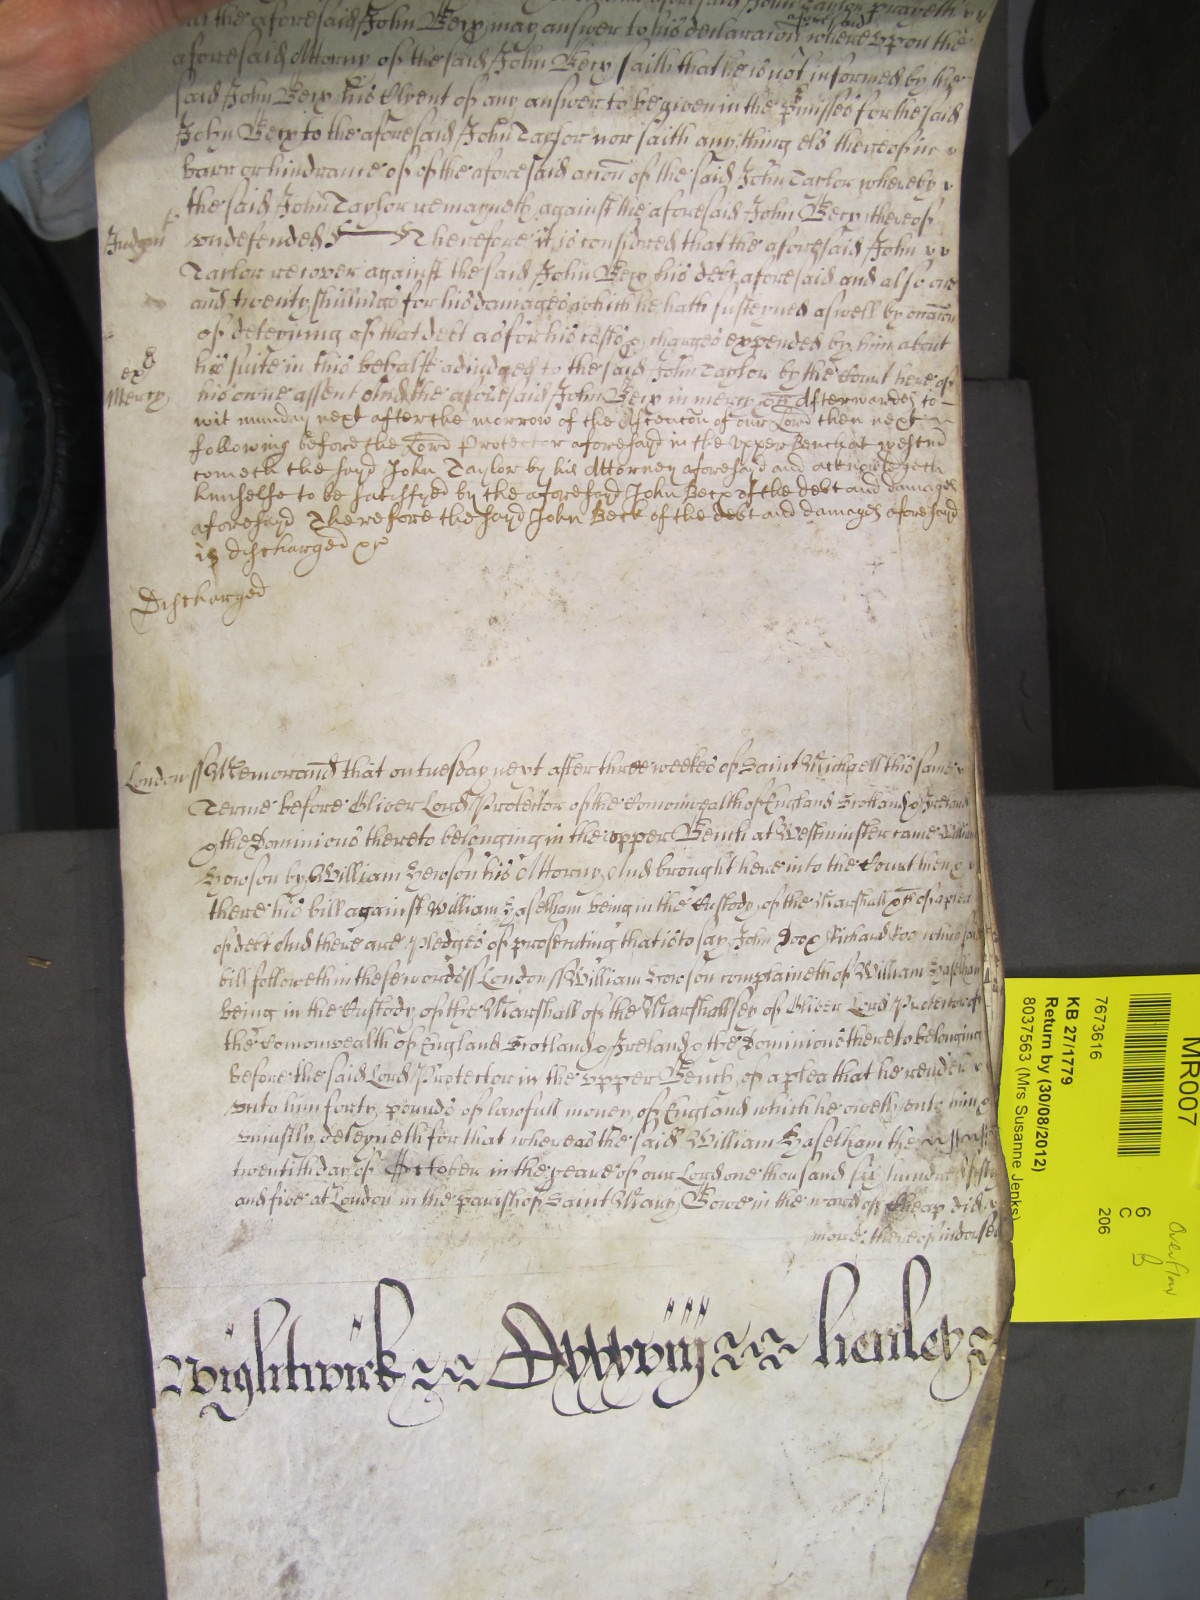 aforesaid John Taylor prayeth
that the aforesaid John Beck may answer to his declaracion aforesaid whereupon the
aforesaid Attorny of the said John Beck saith that he is not informed by the
said John Beck his Clyent of any answer to be given in the pmisses for the said
John Beck to the aforesaid John Taylor nor saith any thing els thereof in
barr or hindrance of of the aforesaid accon of the said John Taylor whereby
the said John Taylor remayneth against the aforesaid John Beck thereof
Judgmt
undefended Therefore it is considred that the aforesaid John
Taylor recover against the said John Beck his debt aforesaid and also one
and twenty shillings for his damages which he hath susteyned aswell by occacon
of deteyning of that debt as for his costs & charges expended by him about
his suite in this behalfe adiudged to the said John Taylor by the Court here of
Mercy
his owne assent And the aforesaid John Beck in mercy &c Afterwardes to
wit munday next after the morrow of the Ascencon of our Lord then next
following before the Lord Protector aforesayd in the Upper Bench at Westm
cometh the sayd John Taylor by his Attorney aforesayd and acknowledgeth
himselfe to be satisfyed by the aforesayd John Beck of the debt and damages
aforesayd Therefore the sayd John Beck of the debt and damages aforesayd
is discharged &c
Discharged
London ss Memorand that on tuesday next after three weekes of Saint Michaell this same
Terme before Oliver Lord Protector of the Comonwealth of England Scotland & Ireland
& the Dominions thereto belonging in the upper Bench at Westminster came William
Hewson by William Hewson his Attorny And brought here into the Court then &
there his bill against William Haselham being in the Custody of the Marshall &c of a plea
of debt And there are pledges of prosecuting that is to say John Doo & Richard Roo which said
bill followeth in these wordes ss London ss William Hewson complaineth of William Haselham
being in the Custody of the Marshall of the Marshallsey of Oliver Lord Protector of
the Comonwealth of England Scotland & Ireland & the Dominions thereto belonging
before the said Lord Protector in the upper Bench of a plea that he render
unto him forty pounds of lawfull money of England which he oweth unto him &
uniustly deteyneth for that whereas the said William Haselham the
twentith day of October in the yeare of our Lord one thousand six hundred fifty
and five at London in the parish of Saint Mary Bowe in the ward of Cheap did
more thereof indorsed
Wightwick Dxxxviij henley
MR007
7673616
206
KB 27/1779
6
C
Return by (30/08/2012)
8037563 (Mrs Susanne Jenks)
Overflow